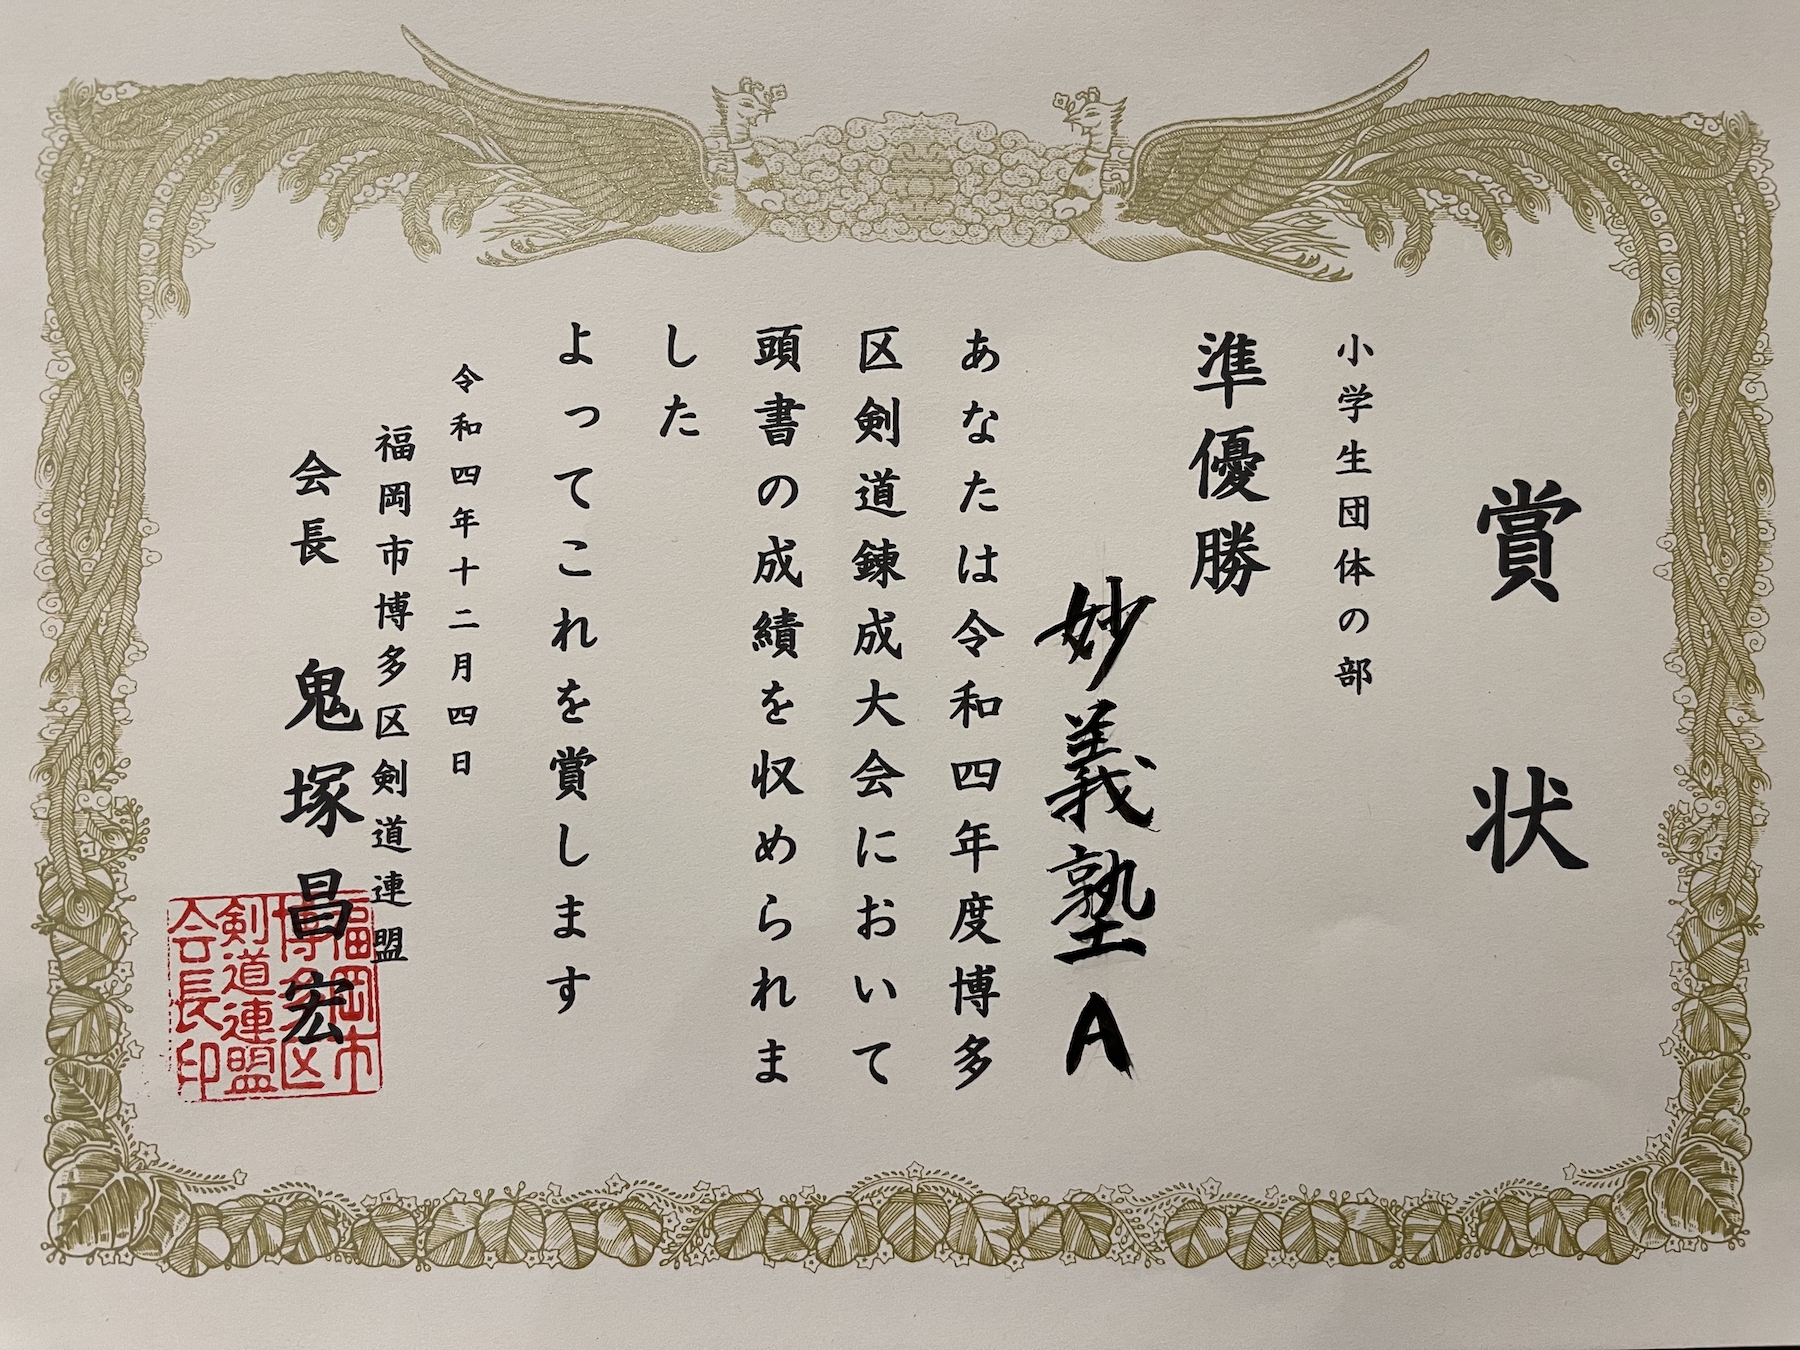 賞状
小学生団体の部
準優勝
妙義塾A
あなたは令和四年度博多
区剣道錬成大会において
頭書の成績を収められま
した
よってこれを賞します
令和四年十二月四日
福岡市博多区剣道連盟
会長 鬼塚昌宏
福岡市
博多区
剣道連盟
会長印